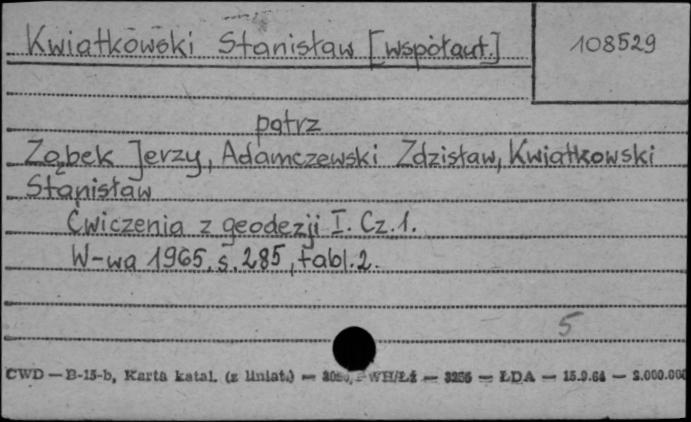 Kwiatkowski Stanisław [współaut.]
108529
patrz
Ząbek Jerzy, Adamczewski Zdzisław, Kwiatkowski
Stanisław
Ćwiczenia z geodezji I. Cz. 1.
W-wa 1965, s. 285, tabl. 2.
5
CWD — B-15-b, Karta katal. (z liniat.) — WH/Łż — 3256 — ŁDA — 15.9.64 — 2.000.000